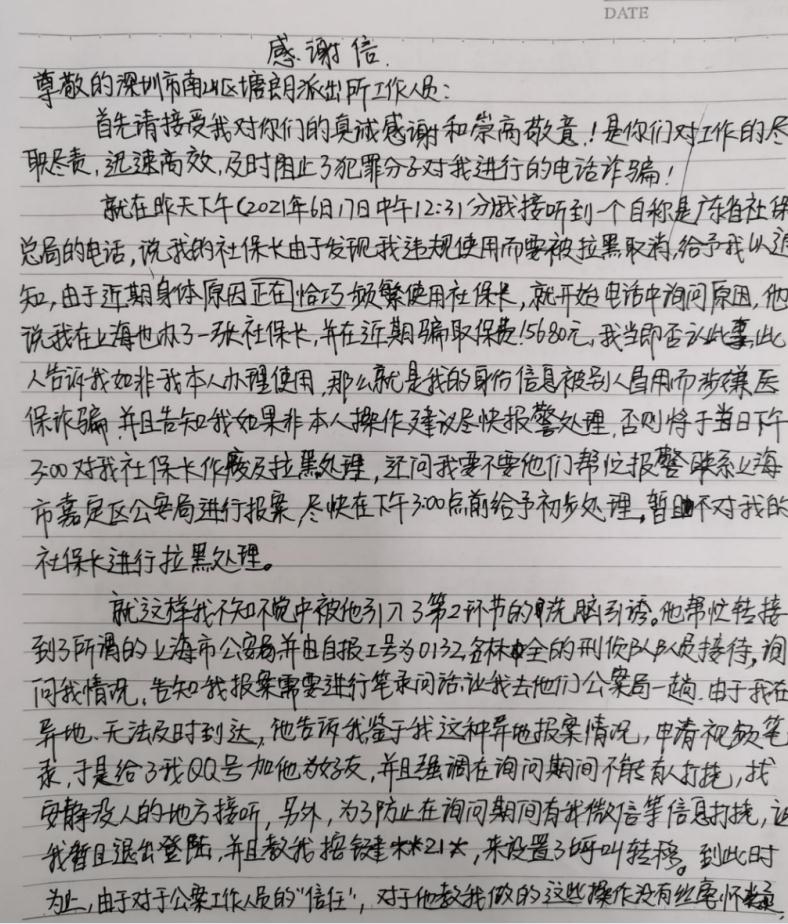 DATE
感谢信.
尊敬的深圳市南山区塘朗派出所工作人员：
首先请接受我对你们的真诚感谢和崇高敬意！是你们对工作的尽
职尽责，迅速高效，及时阻止了犯罪分子对我进行的电话诈骗！
就在昨天下午(2021年6月17日中午12:31分)我接听到一个自称是广东省社保
总局的电话，说我的社保卡由于发现我违规使用而要被拉黑取消，给予我以通
知，由于近期身体原因正在恰巧频繁使用社保卡，就开始电话中询问原因，他
说我在上海也办了一张社保卡，并在近期骗取保费15680元，我当即否认此事，此
人告诉我如非我本人办理使用，那么就是我的身份信息被别人冒用而涉嫌医
保诈骗，并且告知我如果非本人操作建议尽快报警处理，否则将于当日下午
3:00对我社保卡作废及拉黑处理，还问我要不要他们帮忙报警联系上海
市嘉定区公安局进行报案，尽快在下午3:00点前给予初步处理，暂且不对我的
社保卡进行拉黑处理。
就这样我不知不觉中被他引入了第2环节的洗脑引诱。他帮忙转接
到了所谓的上海市公安局并由自报工号为0132，名林全的刑侦队队员接待，询
问我情况，告知我报案需要进行笔录问话，让我去他们公案局一趟，由于我在
异地、无法及时到达，他告诉我鉴于我这种异地报案情况，申请视频笔
录，于是给了我QQ号加他为好友，并且强调在询问期间不能有人打扰，找
安静没人的地方接听，另外，为了防止在询问期间有我微信等信息打扰，让
我暂且退出登陆，并且教我按键**21*，来设置了呼叫转移。到此时
为止，由于对于公案工作人员的“信任”，对于他教我做的这些操作没有丝毫怀疑，